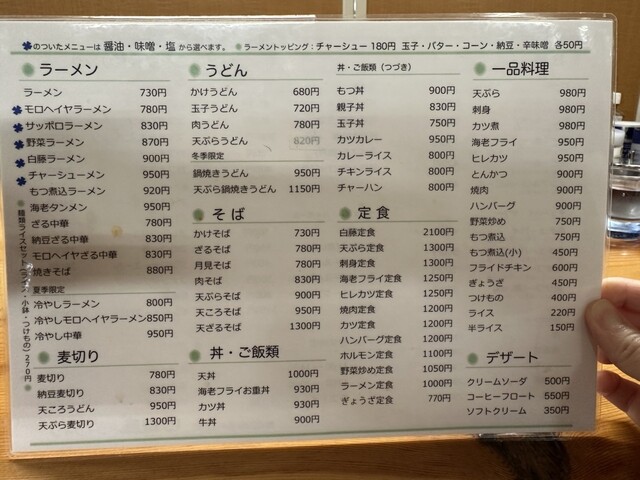 のついたメニューは 醤油・味噌・塩 から選べます。 ●ラーメントッピング：チャーシュー 180円 玉子・バター・コーン・納豆・辛味噌 各50円
ラーメン
ラーメン 730円
モロヘイヤラーメン 780円
サッポロラーメン 830円
野菜ラーメン 870円
白藤ラーメン 900円
チャーシューメン 950円
もつ煮込ラーメン 920円
海老タンメン 950円
ざる中華 780円
納豆ざる中華 830円
モロヘイヤざる中華 830円
焼きそば 880円
夏季限定
冷やしラーメン 800円
冷やしモロヘイヤラーメン 850円
冷やし中華 950円
麺類ライスセット(ライス・小鉢・つけもの) 270円
麦切り
麦切り 780円
納豆麦切り 830円
天ころうどん 950円
天ぷら麦切り 1300円
うどん
かけうどん 680円
玉子うどん 720円
肉うどん 780円
天ぷらうどん 820円
冬季限定
鍋焼きうどん 950円
天ぷら鍋焼きうどん 1150円
そば
かけそば 730円
ざるそば 780円
月見そば 780円
肉そば 830円
天ぷらそば 900円
天ころそば 950円
天ざるそば 1300円
丼・ご飯類
天丼 1000円
海老フライお重丼 930円
カツ丼 930円
牛丼 900円
丼・ご飯類（つづき）
もつ丼 900円
親子丼 830円
玉子丼 750円
カツカレー 950円
カレーライス 800円
チキンライス 800円
チャーハン 800円
定食
白藤定食 2100円
天ぷら定食 1300円
刺身定食 1300円
海老フライ定食 1250円
ヒレカツ定食 1250円
焼肉定食 1200円
カツ定食 1200円
ハンバーグ定食 1200円
ホルモン定食 1100円
野菜炒め定食 1050円
ラーメン定食 1000円
ぎょうざ定食 770円
一品料理
天ぷら 980円
刺身 980円
カツ煮 980円
海老フライ 950円
ヒレカツ 950円
とんかつ 900円
焼肉 900円
ハンバーグ 900円
野菜炒め 750円
もつ煮込 750円
もつ煮込(小) 450円
フライドチキン 600円
ぎょうざ 450円
つけもの 400円
ライス 220円
半ライス 150円
デザート
クリームソーダ 500円
コーヒーフロート 550円
ソフトクリーム 350円